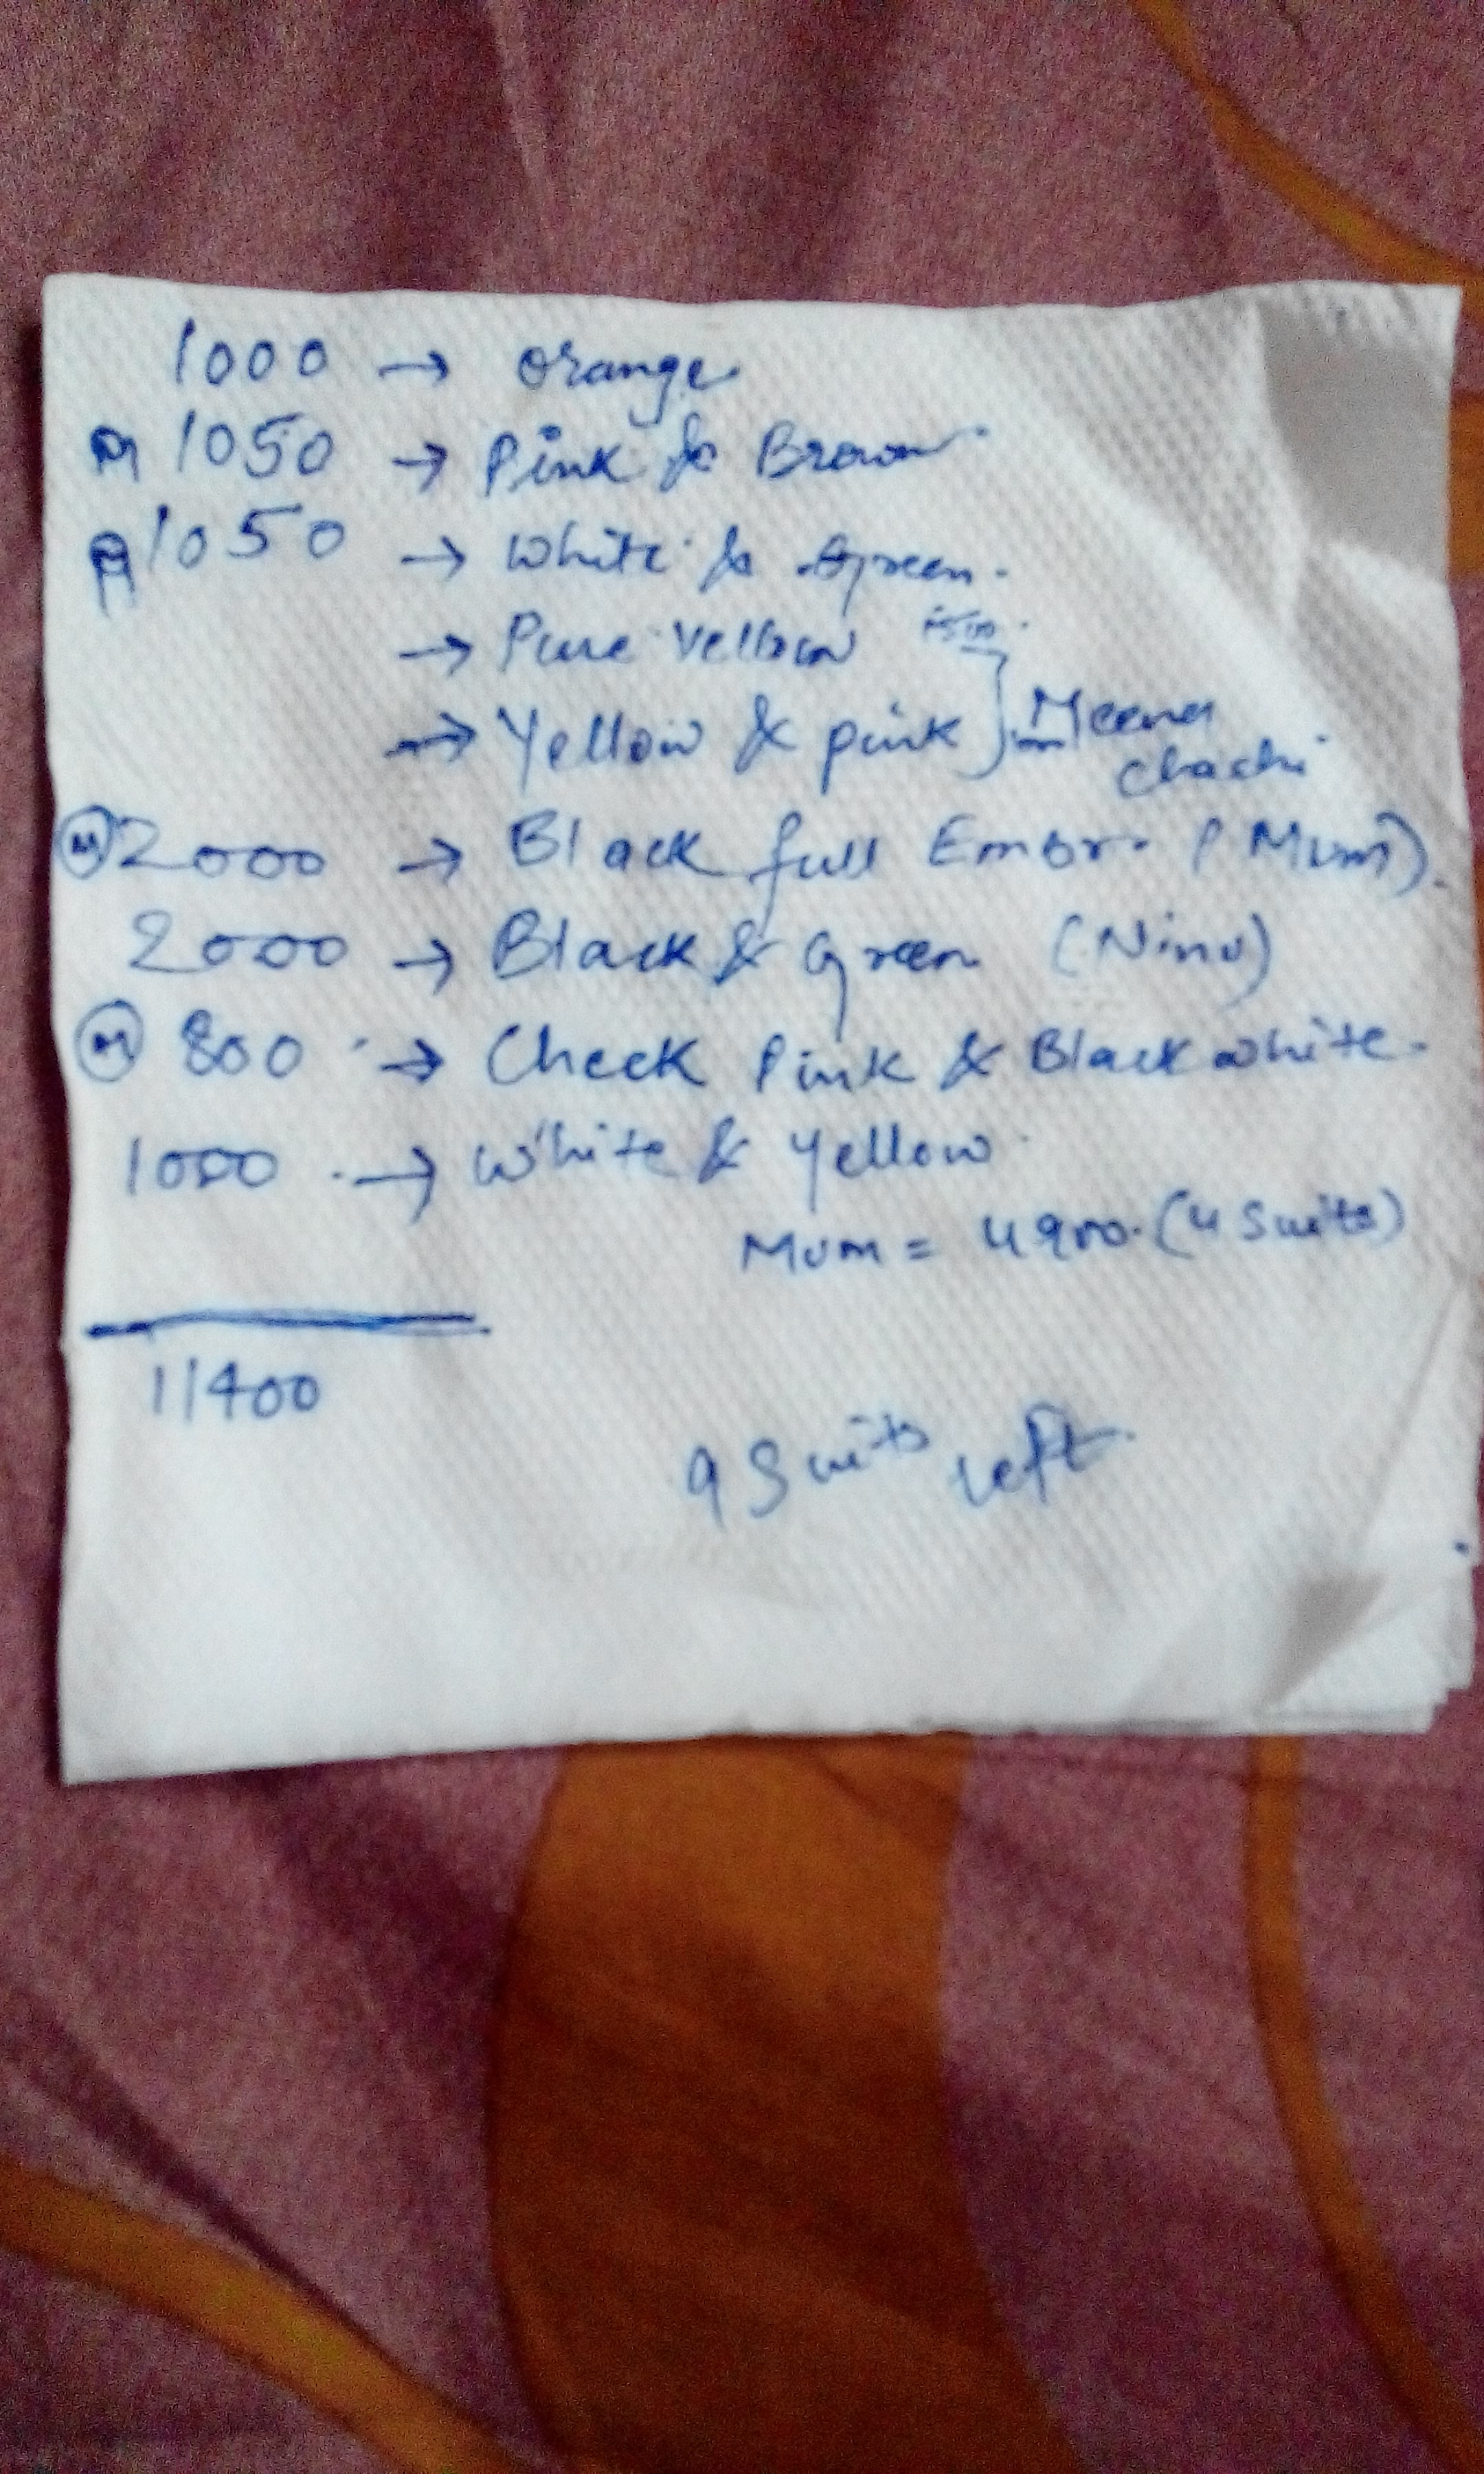 1000 → Orange
M 1050 → Pink & Brown
1050 → White & Green.
→ Pure Yellow
→ Yellow & pink } Meena
chachi
M 2000 → Black full Embr. (Mum).
2000 → Black & Green (Ninu)
M 800 → Check Pink & Black white.
1000 → White & Yellow
Mum = 4900. (4 Suits)
11400
9 Suits left.